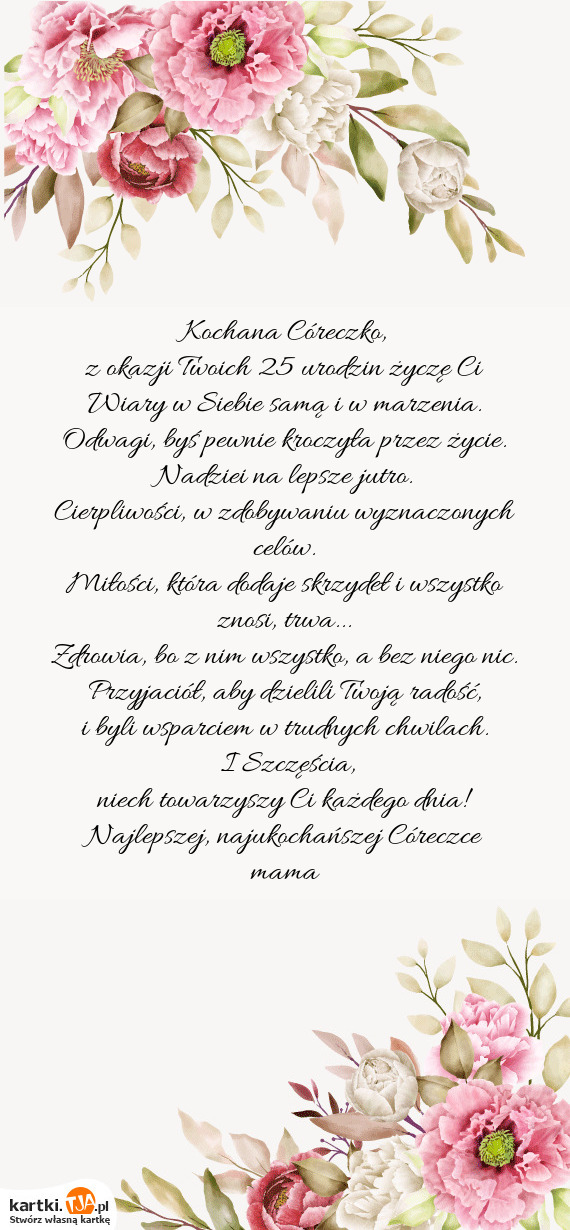 Kochana Córeczko,
z okazji Twoich 25 urodzin życzę Ci
Wiary w Siebie samą i w marzenia.
Odwagi, byś pewnie kroczyła przez życie.
Nadziei na lepsze jutro.
Cierpliwości, w zdobywaniu wyznaczonych
celów.
Miłości, która dodaje skrzydeł i wszystko
znosi, trwa...
Zdrowia, bo z nim wszystko, a bez niego nic.
Przyjaciół, aby dzielili Twoją radość,
i byli wsparciem w trudnych chwilach.
I Szczęścia,
niech towarzyszy Ci każdego dnia!
Najlepszej, najukochańszej Córeczce
mama
kartki.TJA.pl
Stwórz własną kartkę